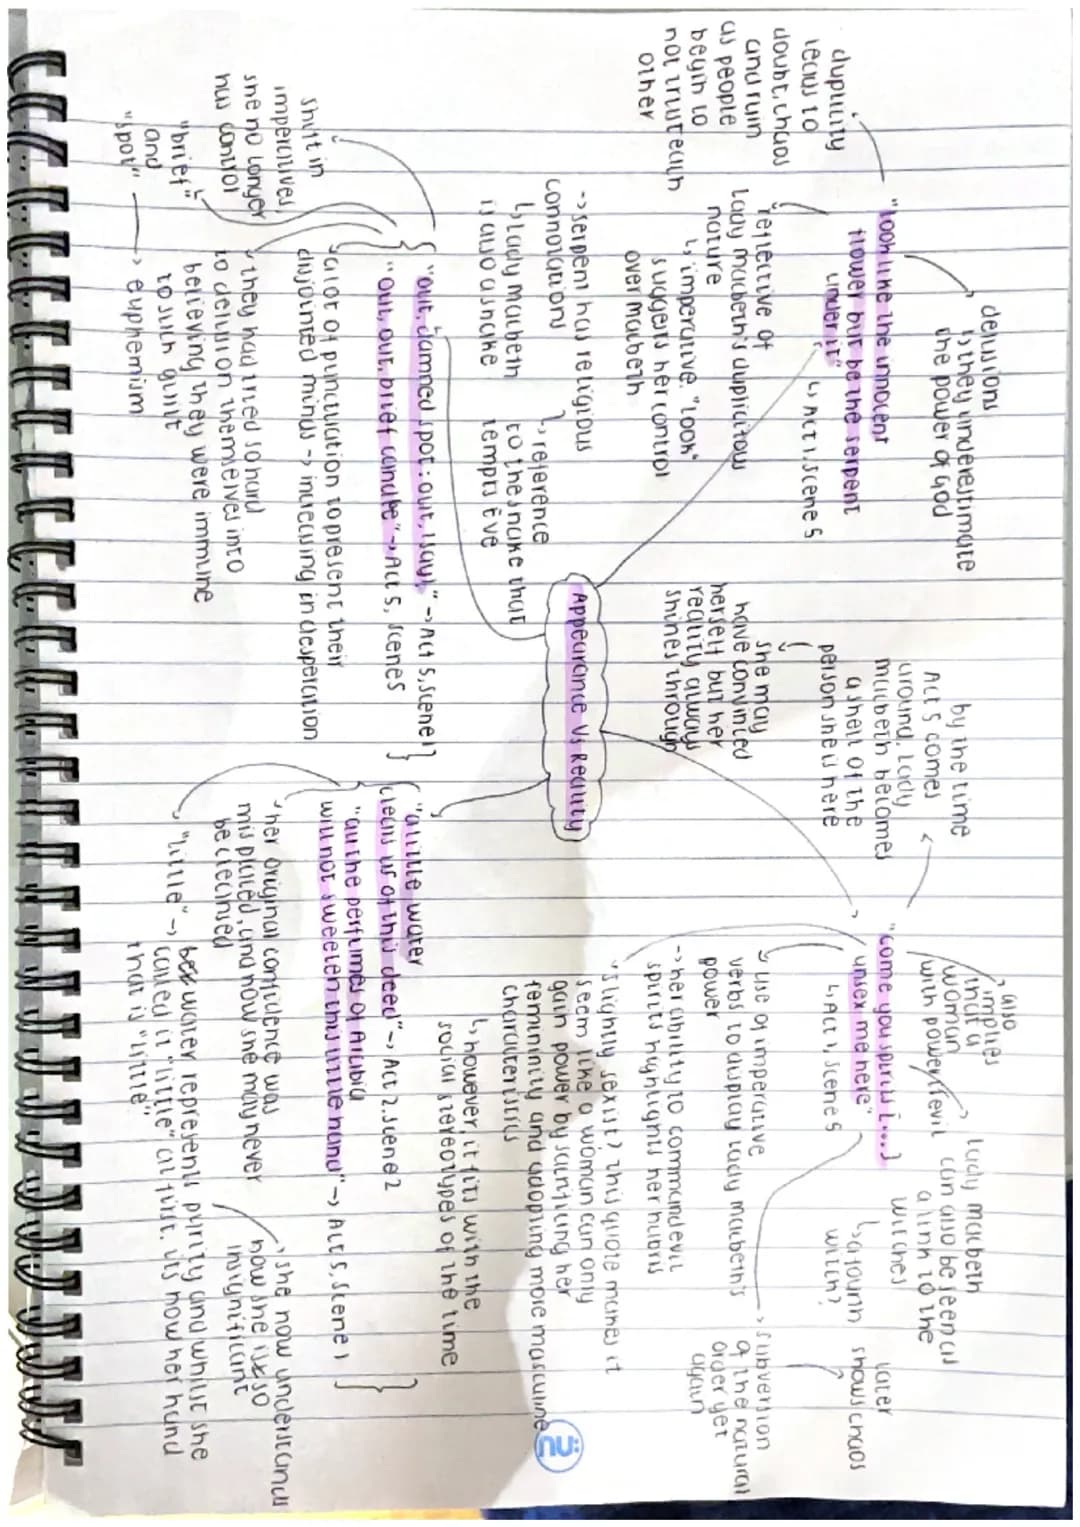 Appearance Vs Reality
"look like the innocent
flower but be the serpent
under it"
↳ Act 1, scene 5
delusions
↳ they underestimate
the power of God
dupulity
leads to
doubt, chaos
and ruin
as people
begin to
not trust each
other
reflective of
lady macbeth's duplicitous
nature
↳ imperative. "look"
suggests her control
over macbeth
-> serpent has religious
connotations
↳ reference
to the snake that
tempts Eve
↳ lady macbeth
is also a snake
"come you spirits [...]
unsex me here"
↳ Act 1, scene 5
by the time
Act 5 comes
around, lady
macbeth becomes
a shell of the
person she is here
she may
have convinced
herself but her
reality always
shines through
also
implies
that a
woman
with power
= evil
lady macbeth
can also be seen as
a link to the
witches
↳ a fourth
witch?
later
shows chaos
↳ use of imperative
verbs to display lady macbeth's
power
-> subversion
of the natural
order yet
again
-> her ability to command evil
spirits highlights her hubris
"slightly sexist? this quote makes it
seem like a woman can only
gain power by sacrificing her
femininity and adopting more masculine
characteristics
↳ however, it fits with the
social stereotypes of the time
"out, damned spot: out, I say!" -> Act 5, scene 1
"Out, out, brief candle" -> Act 5, scene 5
shift in
imperatives,
she no longer
has control
a lot of punctuation to present their
disjointed minds -> increasing in desperation
they had tried so hard
to delusion themselves into
believing they were immune
to such guilt
"brief"
and
"spot" -> euphemism
"a little water
clears us of this deed" -> Act 2, scene 2
"all the perfumes of Arabia
will not sweeten this little hand" -> Act 5, scene 1
her original confidence was
misplaced, and now she may never
be cleansed
she now understands
how she is so
insignificant
"little" -> water represents purity and whilst she
called it "little" at first, its now her hand
that is "little"